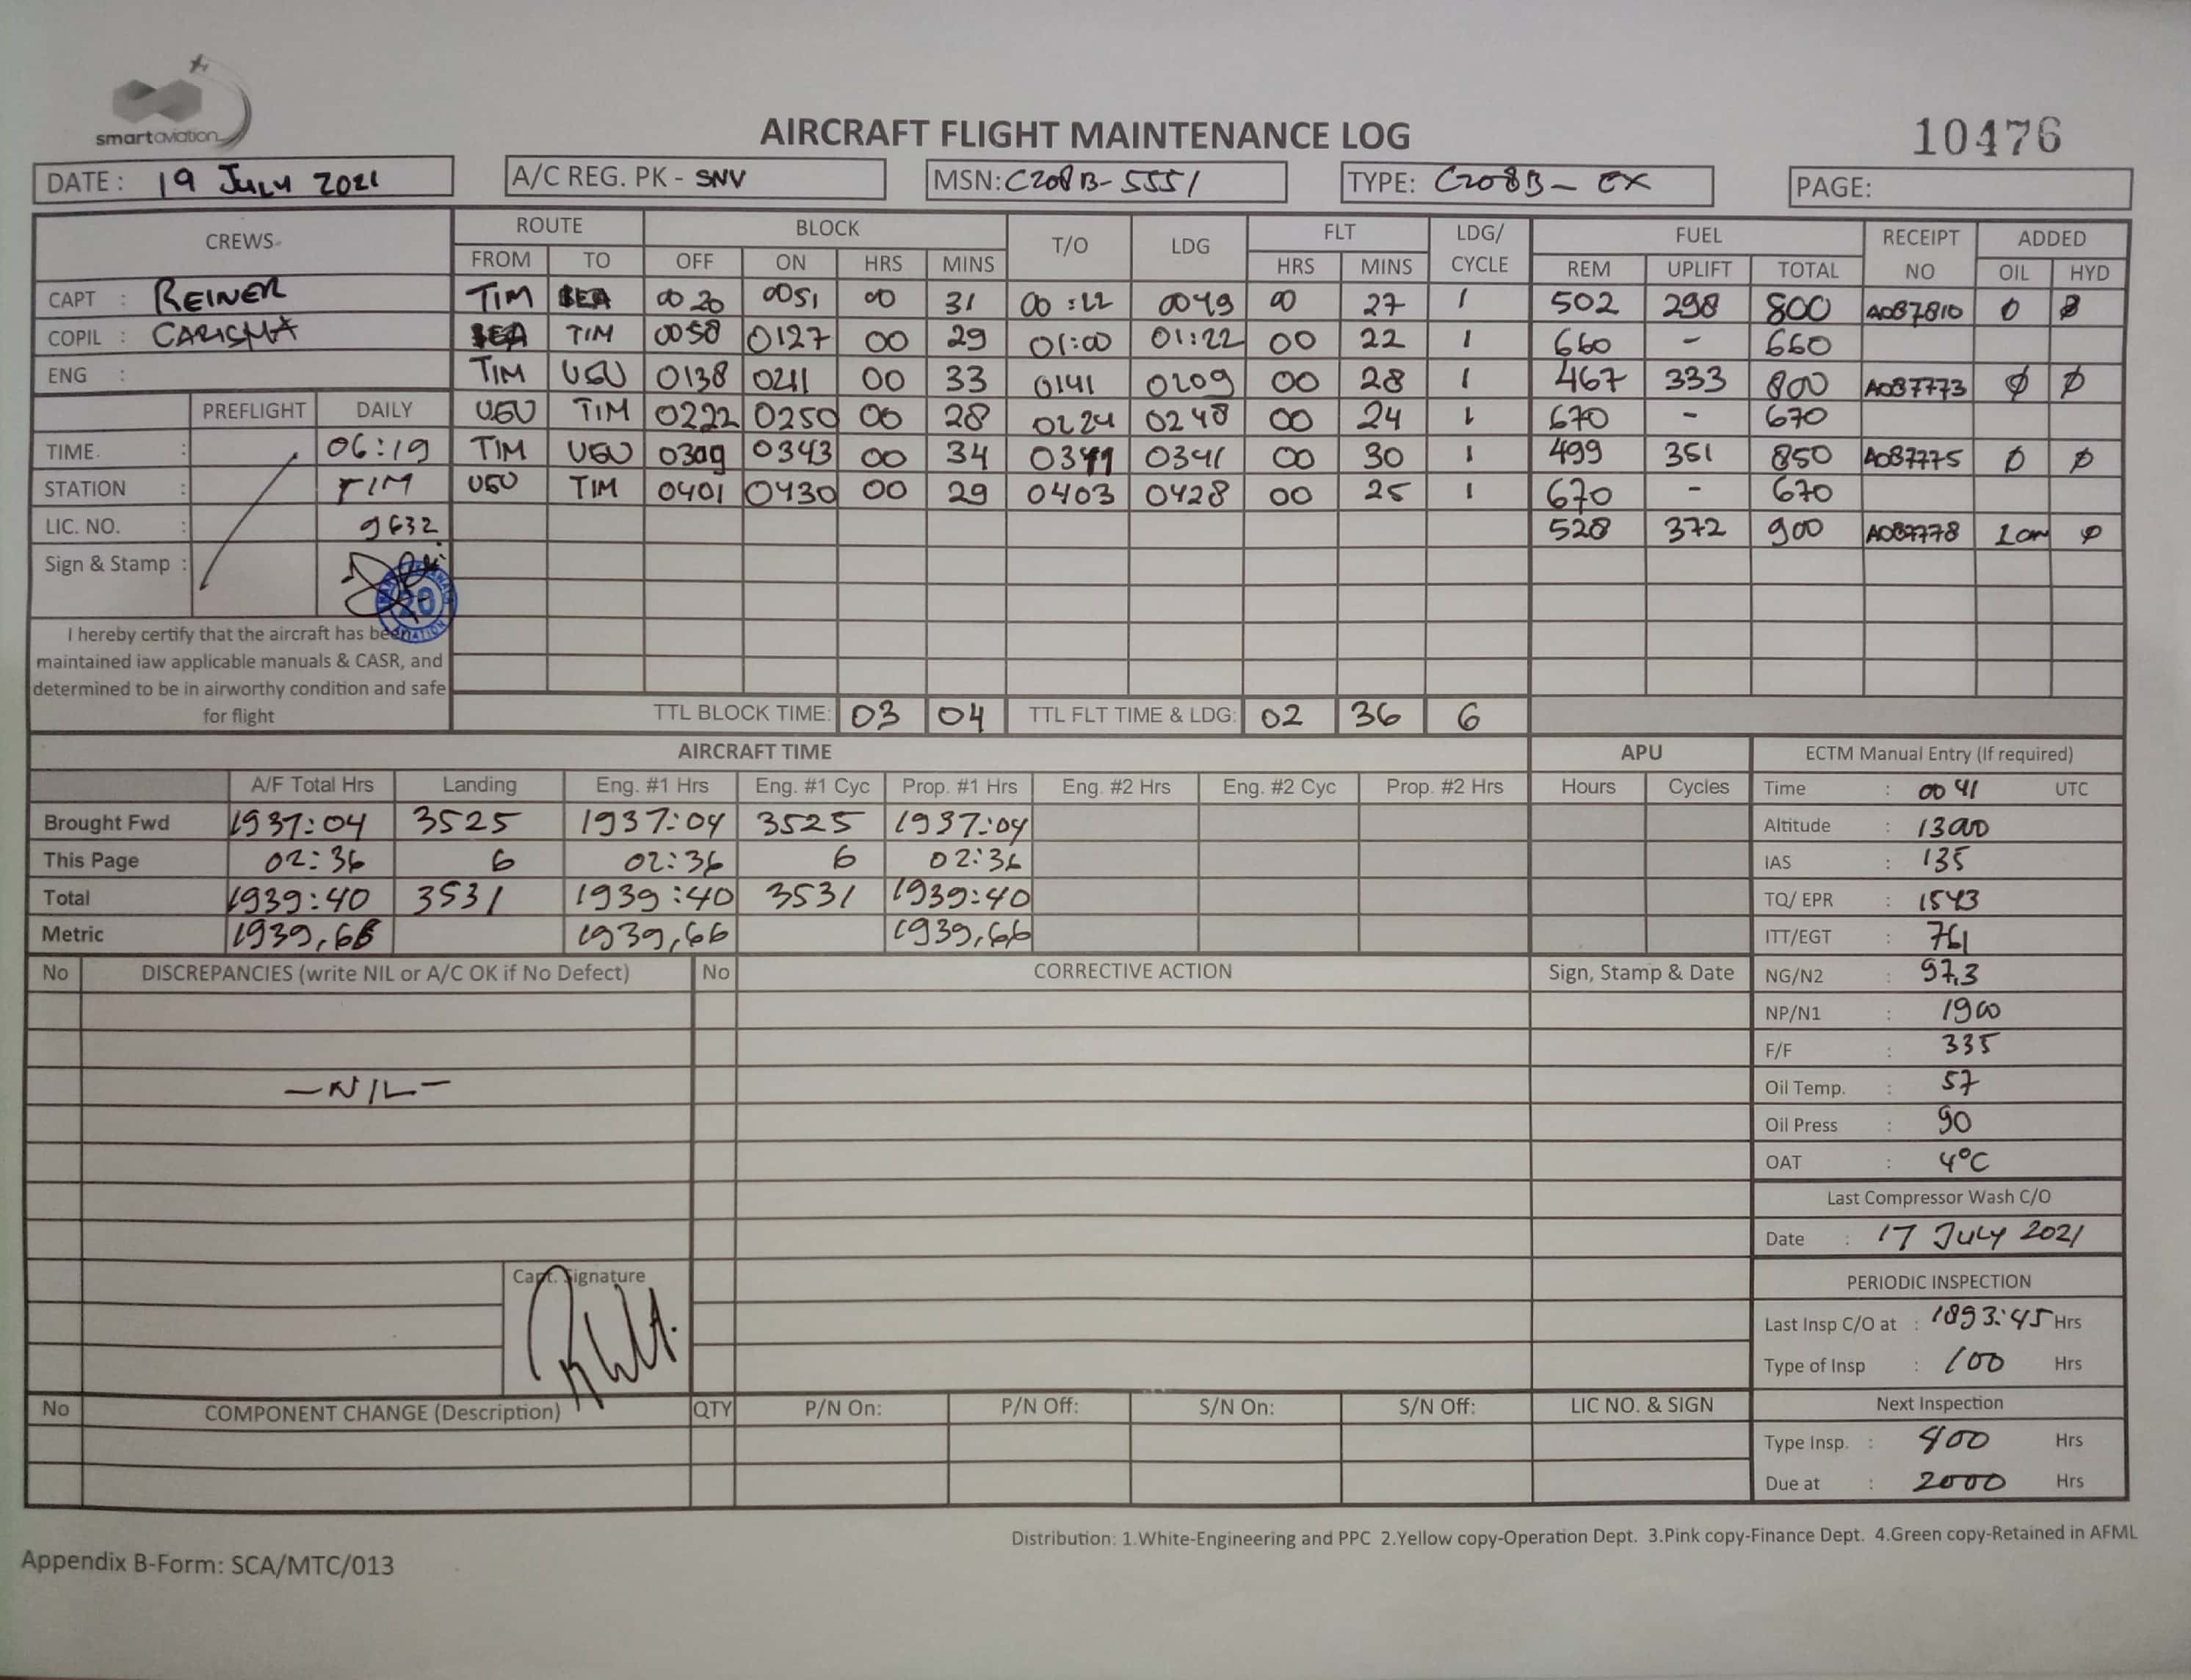 smartaviation
AIRCRAFT FLIGHT MAINTENANCE LOG
10476
DATE : 19 July 2021
A/C REG. PK - SNV
MSN: C208B-5551
TYPE: C208B - EX
PAGE:
CREWS ROUTE BLOCK T/O LDG FLT LDG/ CYCLE FUEL RECEIPT NO ADDED
FROM TO OFF ON HRS MINS HRS MINS REM UPLIFT TOTAL OIL HYD
CAPT : REINER TIM 00 20 0051 00 31 00:22 0049 00 27 1 502 298 800 A087810 0 0
COPIL : CARISMA TIM 0058 0127 00 29 01:00 01:22 00 22 1 660 - 660
ENG : TIM UGU 0138 0211 00 33 0141 0209 00 28 1 467 333 800 A087773 Ø Ø
PREFLIGHT DAILY UGU TIM 0222 0250 00 28 0224 0248 00 24 1 670 - 670
TIME : 06:19 TIM UGU 0309 0343 00 34 0341 00 30 1 499 351 850 A087775 Ø Ø
STATION : TIM UGU TIM 0401 0430 00 29 0403 0428 00 25 1 670 - 670
LIC. NO. : 9632 528 372 900 A087778 Ø
Sign & Stamp : 20 AVIATION
I hereby certify that the aircraft has been
maintained iaw applicable manuals & CASR, and
determined to be in airworthy condition and safe
for flight
TTL BLOCK TIME: 03 04 TTL FLT TIME & LDG: 02 36 6
AIRCRAFT TIME APU ECTM Manual Entry (If required)
A/F Total Hrs Landing Eng. #1 Hrs Eng. #1 Cyc Prop. #1 Hrs Eng. #2 Hrs Eng. #2 Cyc Prop. #2 Hrs Hours Cycles Time : 00 41 UTC
Brought Fwd 1937:04 3525 1937:04 3525 1937:04 Altitude : 13000
This Page 02:36 6 02:36 6 02:36 IAS : 135
Total 1939:40 3531 1939:40 3531 1939:40 TQ/ EPR : 1543
Metric 1939,66 1939,66 1939,66 ITT/EGT : 761
No DISCREPANCIES (write NIL or A/C OK if No Defect) No CORRECTIVE ACTION Sign, Stamp & Date NG/N2 : 97,3
NP/N1 : 1900
F/F : 335
- NIL - Oil Temp. : 57
Oil Press : 90
OAT : 4°C
Last Compressor Wash C/O
Date : 17 July 2021
Capt. Signature
PERIODIC INSPECTION
Last Insp C/O at : 1893:45 Hrs
Type of Insp : 100 Hrs
No COMPONENT CHANGE (Description) QTY P/N On: P/N Off: S/N On: S/N Off: LIC NO. & SIGN Next Inspection
Type Insp. : 400 Hrs
Due at : 2000 Hrs
Distribution: 1.White-Engineering and PPC 2.Yellow copy-Operation Dept. 3.Pink copy-Finance Dept. 4.Green copy-Retained in AFML
Appendix B-Form: SCA/MTC/013